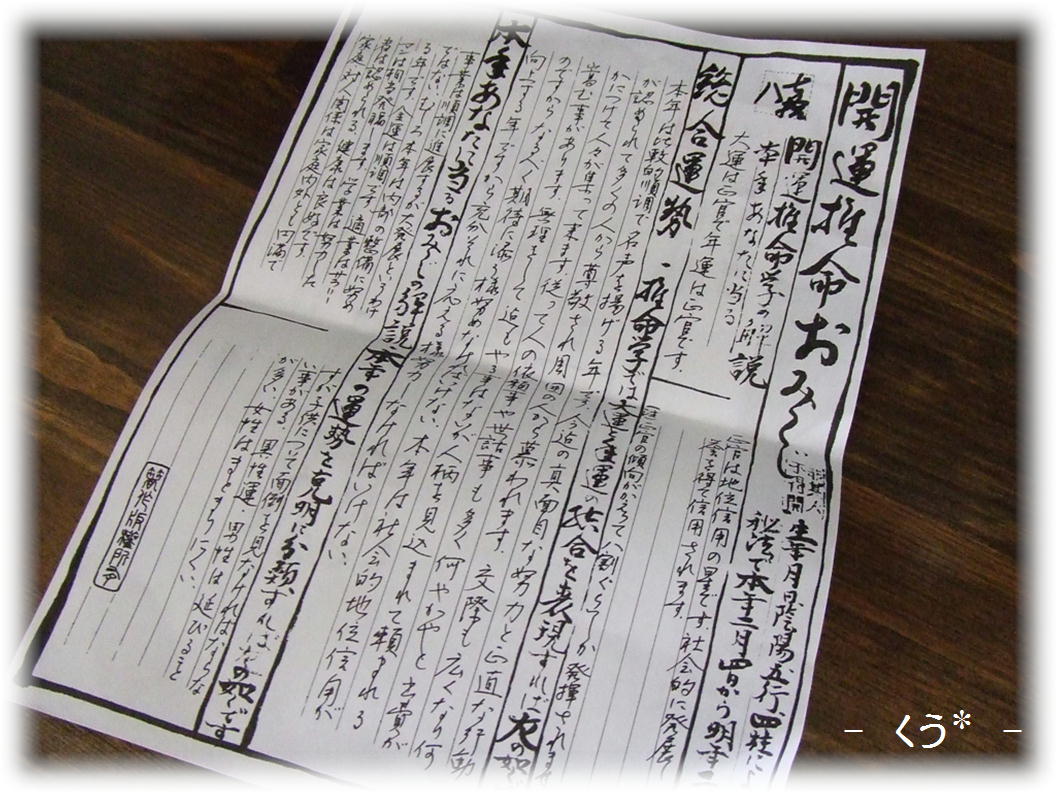 開運推命おみくじ
生年月日陰陽五行、四柱に
秘法で本年二月四日から明年二
開運推命学の解説
本年あなたに当る
大運は正官で年運は正官です。
正官は地位信用の星です社会的に発展
を得て信用されます。
総合運勢・推命学では大運と年運の結合を表現すれば左の如
本年は比較的順調で名声を揚げる年です。今迄の真面目な努力と正直な行動
が認められて多くの人から尊敬され周囲の人から慕われます。交際も広くなり何
かにつけて人々が集って来ます。従って人の依頼事や世話事も多く何やかやと出費が
嵩む事があります。無理をして迄もやる事はないが人柄を見込まれて頼まれる
のですからなるべく期待に添う様努めなければいけない。本年は社会的地位信用が
向上する年ですから充分それに応える様努力しなければいけない。
本年あなたに当るおみくじの解説
本年の運勢を克明に分類すれば左の如くです
事業は順調に進展するが大発展というわけ
ではない。むしろ本年は内部の整備に努め
る年です。金運は順調です。適業はサラリー
マンは相当発展します。学業は努力した
者は認められる。健康は良好です。
家庭対人関係は家庭内外とも円満で
すが子供について面倒を見なければならな
い事がある。異性運 男性は延びると
が多い。女性はまとまりにくい。